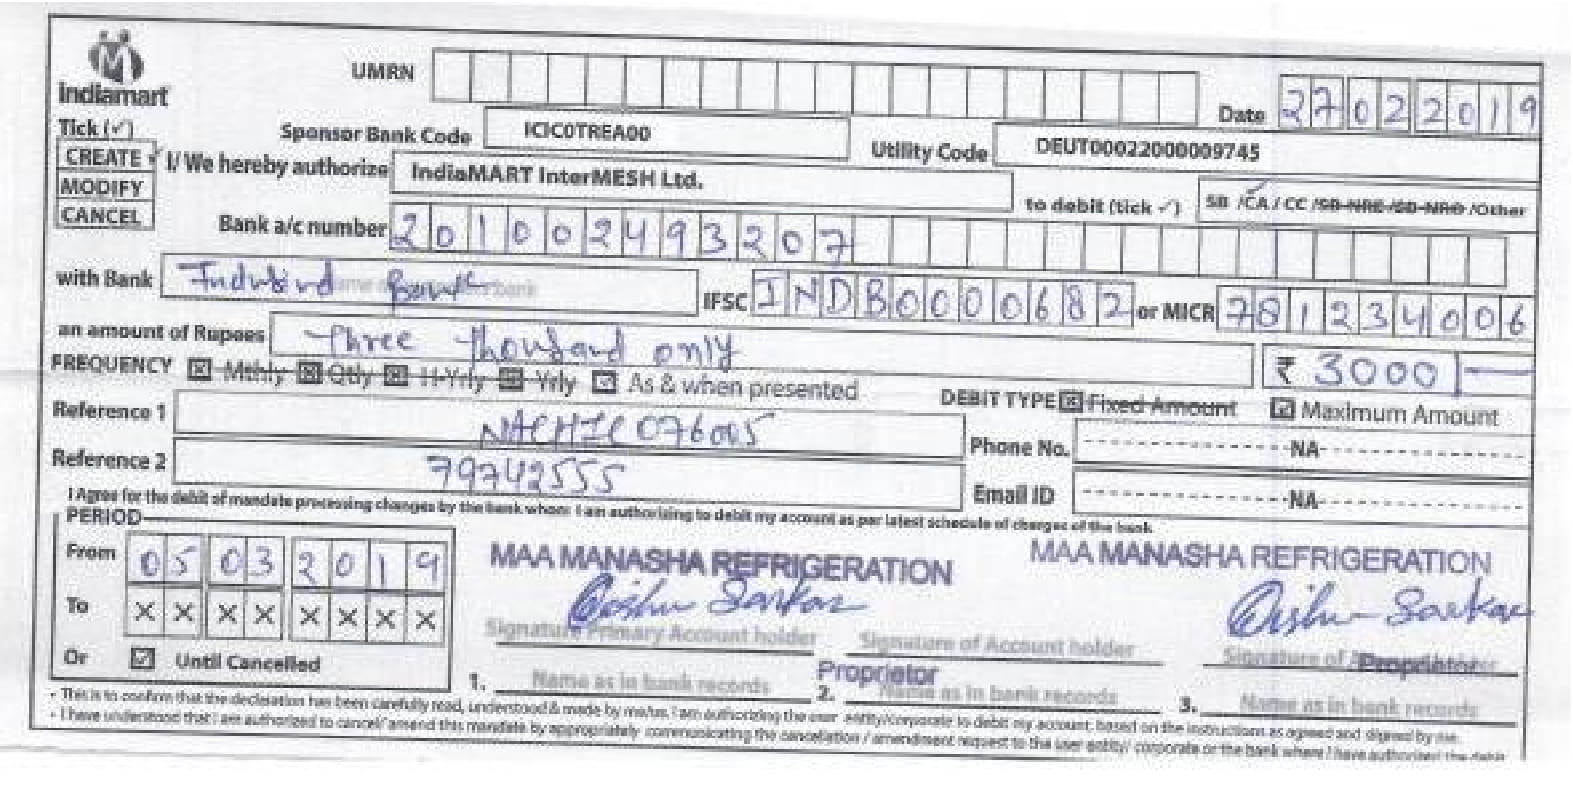 indiamart
UMRN
Date 27022019
Tick (✓)
Sponsor Bank Code ICIC0TREA00 Utility Code DEUT00022000009745
CREATE ✓ I/ We hereby authorize IndiaMART InterMESH Ltd. to debit (tick ✓) SB /CA / CC /SB-NRE /SB-NRO /Other
MODIFY
CANCEL
Bank a/c number 201002493207
with Bank Indusind Bank IFSC INDB0000682 or MICR 781234006
an amount of Rupees Three thousand only ₹ 3000/-
FREQUENCY Mthly Qtly H-Yrly Yrly As & when presented DEBIT TYPE Fixed Amount Maximum Amount
Reference 1 NACHIC076005 Phone No. NA
Reference 2 79742555 Email ID NA
I Agree for the debit of mandate processing charges by the bank whom I am authorizing to debit my account as per latest schedule of charges of the bank
PERIOD
From 05 03 2019
To X X X X X X X X
Or ✓ Until Cancelled
MAA MANASHA REFRIGERATION MAA MANASHA REFRIGERATION
Signature Primary Account holder Signature of Account holder Signature of
Proprietor Proprietor
1. Name as in bank records 2. Name as in bank records 3. Name as in bank records
• This is to confirm that the declaration has been carefully read, understood & made by me/us. I am authorizing the user entity/corporate to debit my account, based on the instructions as agreed and signed by me.
• I have understood that I am authorized to cancel/ amend this mandate by appropriately communicating the cancellation / amendment request to the user entity/ corporate or the bank where I have authorized the debit.